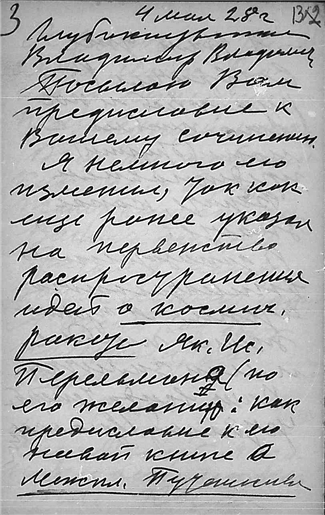 3 4 мая 28 г 132
Глубокоуважаем
Владимир Владимир
Посылаю Вам
предисловие к
Вашему сочинению.
Я немного его
изменил, так как
еще ранее указал
на первенство
распространения
идей о космич.
ракете Як. Ис.
Перельмана (по
его желанию: как
предисловие к его
новой книге о
Межпл. Путешеств